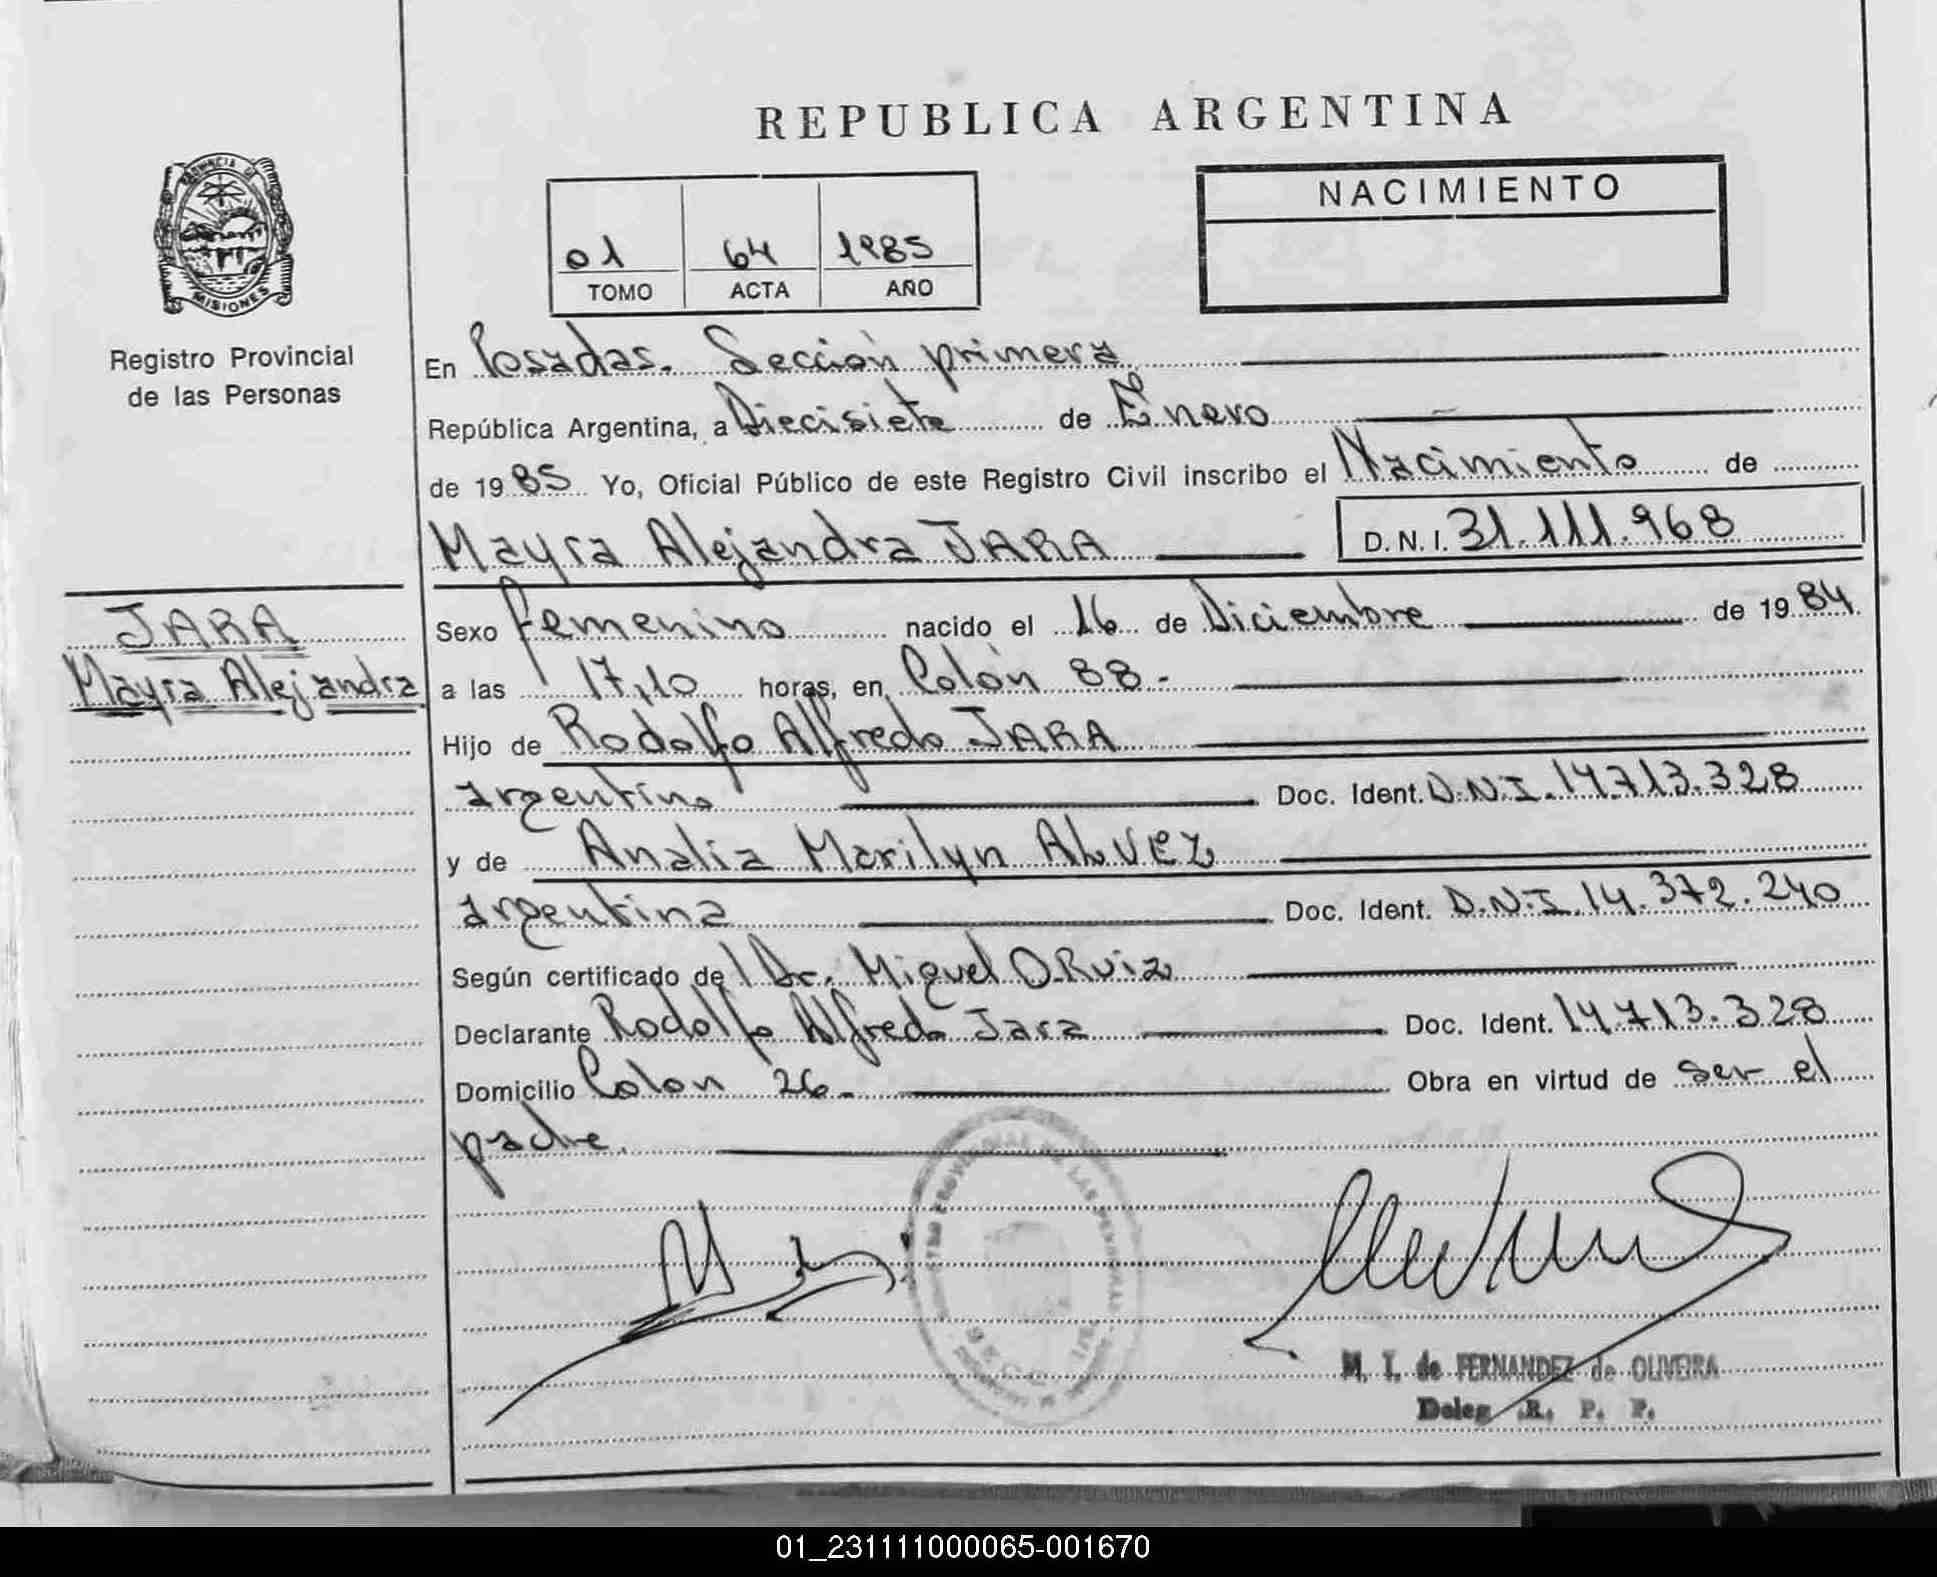 REPUBLICA ARGENTINA
PROVINCIA DE
MISIONES
Registro Provincial
de las Personas
01 64 1985
TOMO ACTA AÑO
NACIMIENTO
En Posadas. Sección primera
República Argentina, a Diecisiete de Enero
de 1985 Yo, Oficial Público de este Registro Civil inscribo el Nacimiento de
Mayra Alejandra JARA D.N.I. 31.111.968
JARA
Mayra Alejandra
Sexo femenino nacido el 16 de Diciembre de 1984
a las 17,10 horas, en Colón 88.-
Hijo de Rodolfo Alfredo JARA
argentino Doc. Ident. D.N.I. 14.713.328
y de Analia Marilyn ALVEZ
argentina Doc. Ident. D.N.I. 14.372.240
Según certificado de / Dr. Miguel O. Ruiz
Declarante Rodolfo Alfredo Jara Doc. Ident. 14.713.328
Domicilio Colon 26.- Obra en virtud de ser el
padre.
M. I. de FERNANDEZ de OLIVEIRA
Deleg. R. P. P.
01_231111000065-001670